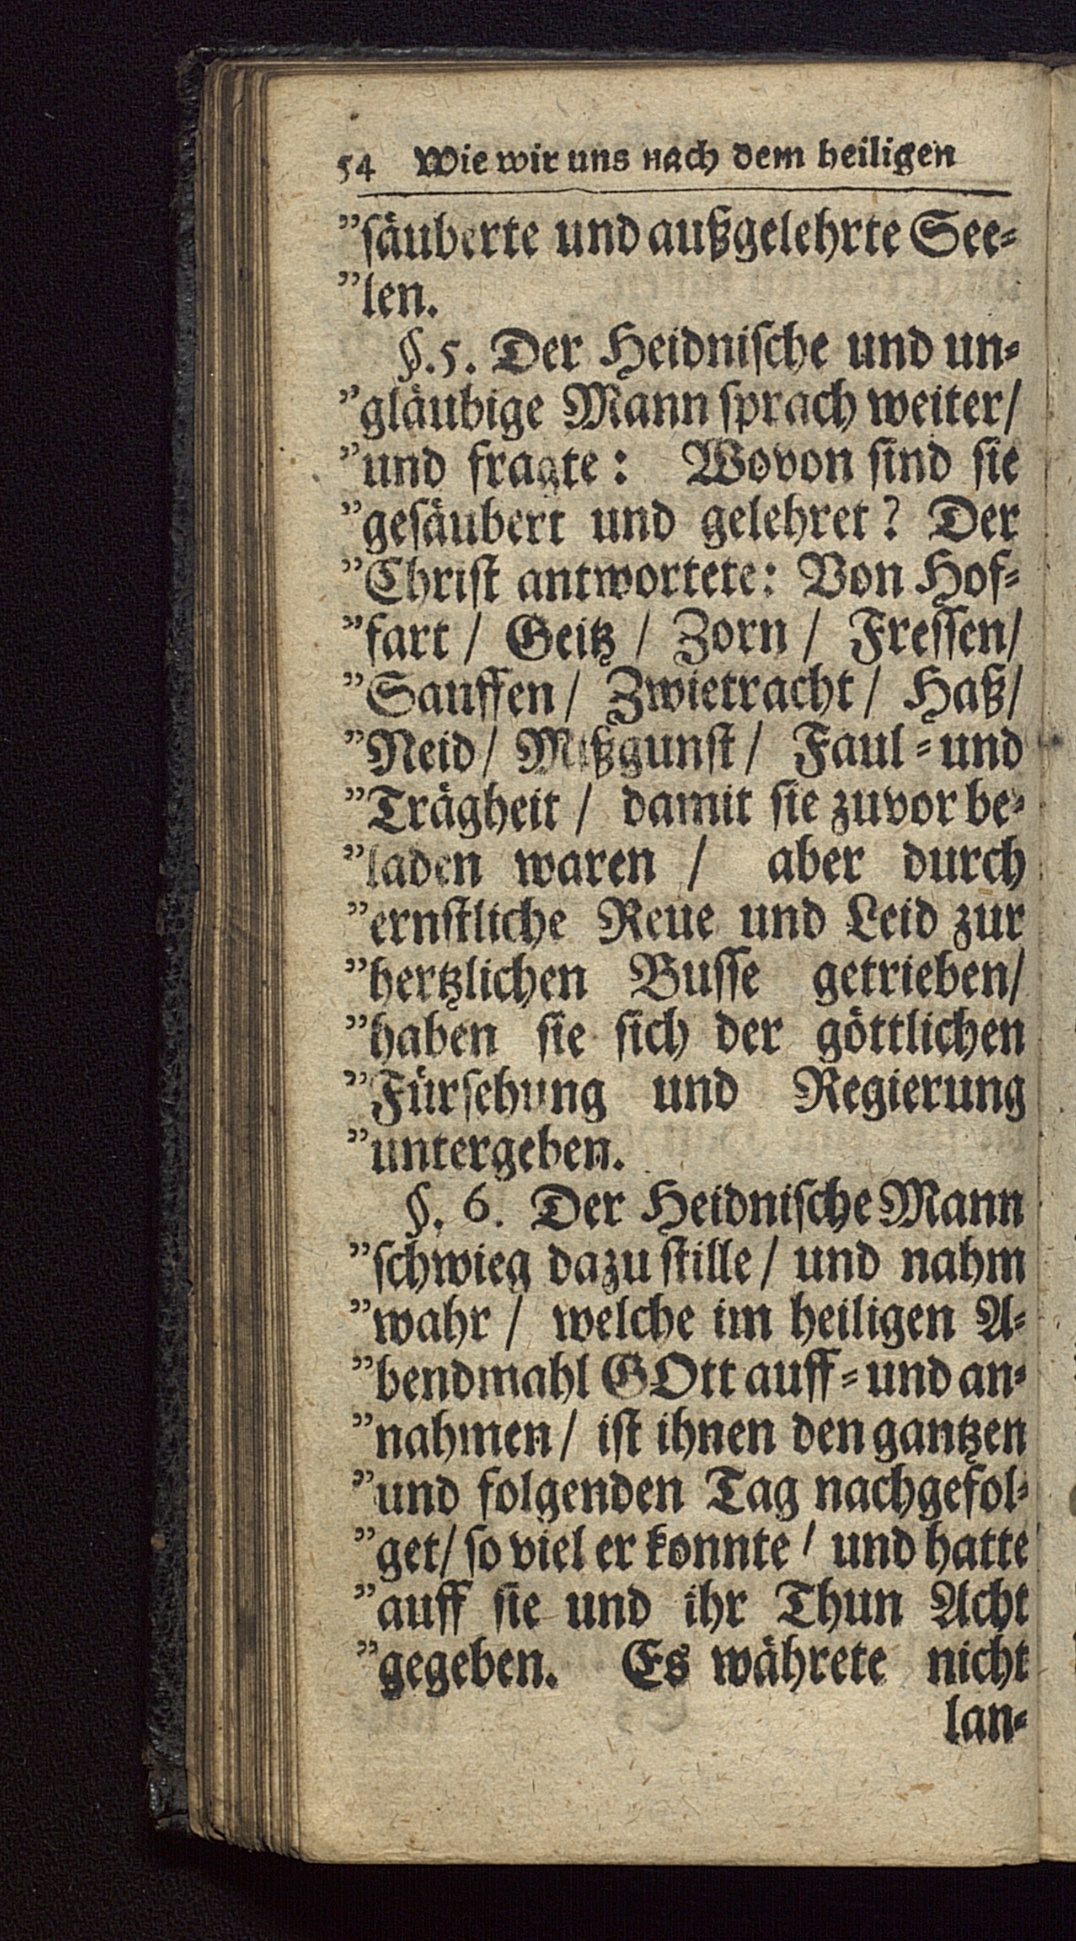 54 Wie wir uns nach dem heiligen
”säuberte und außgelehrte See⸗
”len.
§. 5. Der Heidnische und un⸗
”gläubige Mann sprach weiter/
”und fragte: Wovon sind sie
”gesäubert und gelehret? Der
”Christ antwortete: Von Hof⸗
”fart / Geitz / Zorn / Fressen/
”Sauffen / Zwietracht / Haß/
”Neid / Mißgunst / Faul⸗ und
”Trägheit / damit sie zuvor be⸗
”laden waren / aber durch
”ernstliche Reue und Leid zur
”hertzlichen Busse getrieben/
”haben sie sich der göttlichen
”Fürsehung und Regierung
”untergeben.
§. 6. Der Heidnische Mann
”schwieg dazu stille / und nahm
”wahr / welche im heiligen A⸗
”bendmahl GOtt auff⸗ und an⸗
”nahmen / ist ihnen den gantzen
”und folgenden Tag nachgefol⸗
”get/ so viel er konnte / und hatte
”auff sie und ihr Thun Acht
”gegeben. Es währete nicht
lan⸗